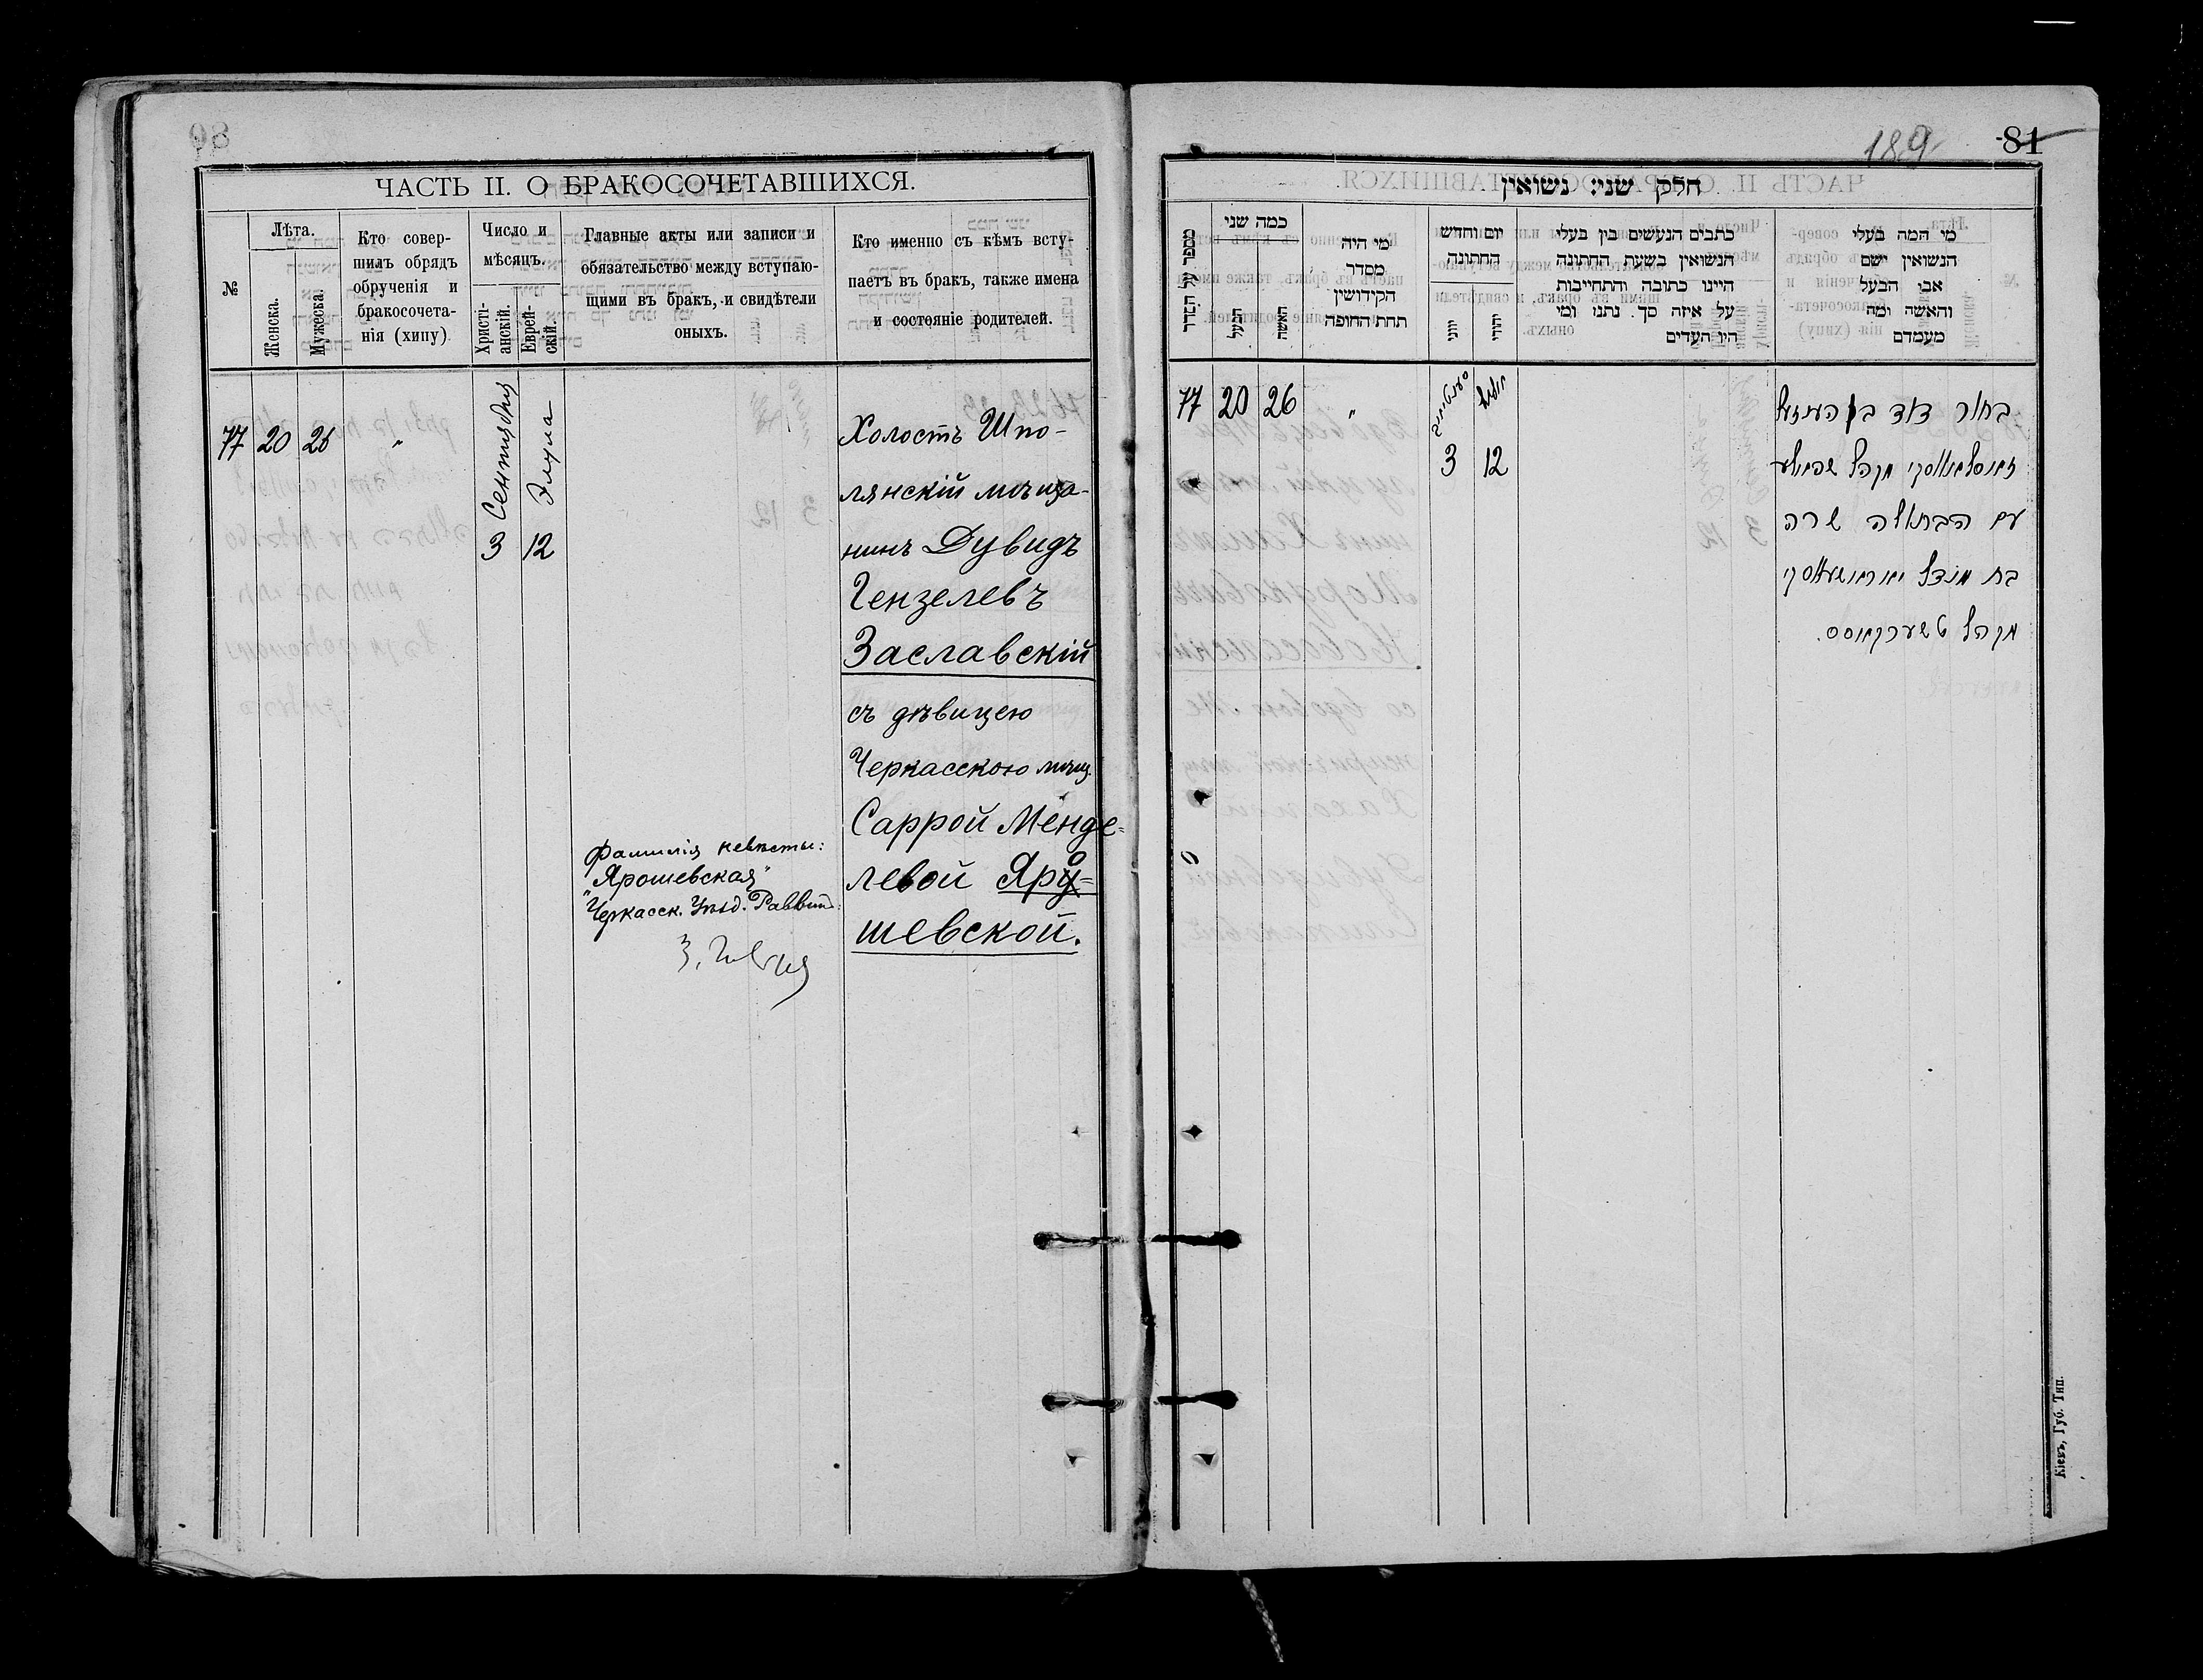 ЧАСТЬ II. О БРАКОСОЧЕТАВШИХСЯ.
№
Лѣта.
Женска.
Мужеска.
Кто совер-
шилъ обрядъ
обрученія и
бракосочета-
нія (хипу)
Число и
мѣсяцъ.
Христі-
анскій.
Еврей-
скій.
Главные акты или записи и
обязательство между вступаю-
щими въ бракъ, и свидѣтели
оныхъ.
Кто именно съ кѣмъ всту-
паетъ въ бракъ, также имена
и состояніе родителей.
77 20 26 "
Сентября
3
Элула
12
Холостъ Шпо-
лянскій мѣща-
нинъ Дувидъ
Гензелевъ
Заславскій
съ дѣвицею
Черкасскою мѣщ.
Саррой Менде=
левой Яро=
шевской.
Фамилія невѣсты:
"Ярошевская"
Черкасск. Уѣзд. Раввин:
189
81
חלק שני: נשואין
מספר על הסדר
כמה שני
הבעל
האשה
מי היה
מסדר
הקידושין
תחת החופה
יום וחדש
החתונה
יוני
יהודי
כתבים הנעשים בין בעלי
הנשואין בשעת החתונה
היינו כתובה והתחייבות
על איזה סך. נתנו ומי
היו העדים
מי המה בעלי
הנשואין ושם
אבי הבעל
והאשה ומה
מעמדם
77 20 26 "
3
אלול
12
בחור דוד בן הענזעל
זאסלאווסקי מקהל שפאלע
עם הבתולה שרה
בת מענדל יאראשעווסקי
מקהל טשערקאסס.
Кіевъ, Губ. Тип.